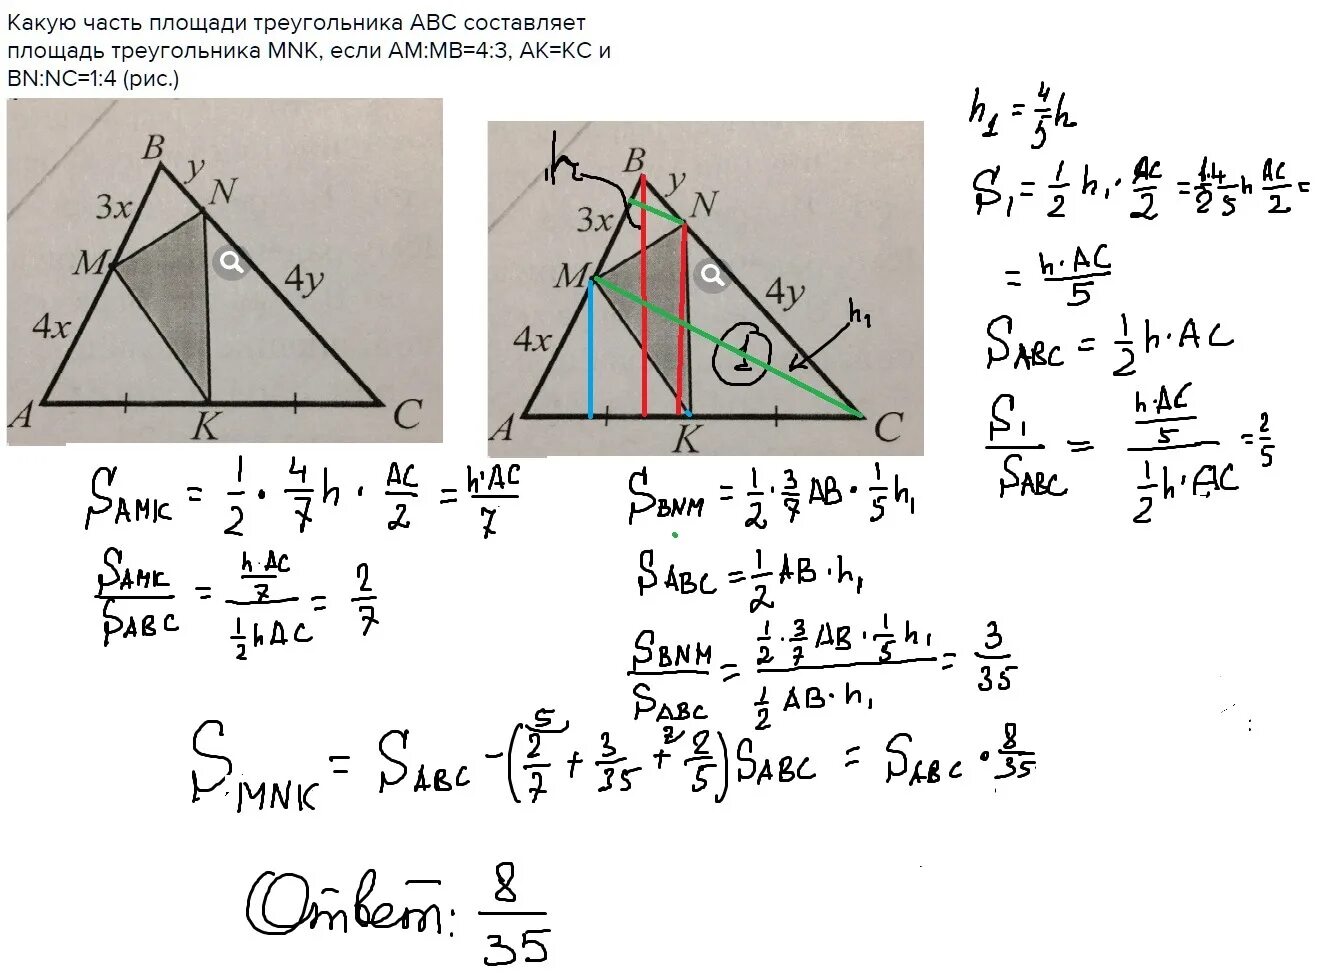 Какую часть площади треугольника ABC составляет
площадь треугольника MNK, если AM:MB=4:3, AK=KC и
BN:NC=1:4 (рис.)
B
y
N
3x
M
4y
4x
A
K
C
h
B
y
N
3x
M
4y
h₁
4x
1
A
K
C
h₁ = 4/5 h
S₁ = 1/2 h₁ · AC/2 = 1·4/2·5 h AC/2 =
= h·AC/5
S ABC = 1/2 h·AC
S₁/S ABC = (h·AC/5)/(1/2 h·AC) = 2/5
S AMK = 1/2 · 4/7 h · AC/2 = h·AC/7
S AMK/S ABC = (h·AC/7)/(1/2 h AC) = 2/7
S BNM = 1/2 · 3/7 AB · 1/5 h₁
S ABC = 1/2 AB · h₁
S BNM/S ABC = (1/2 · 3/7 AB · 1/5 h₁)/(1/2 AB · h₁) = 3/35
5 7
S MNK = S ABC - (2/7 + 3/35 + 2/5) S ABC = S ABC · 8/35
Ответ: 8/35